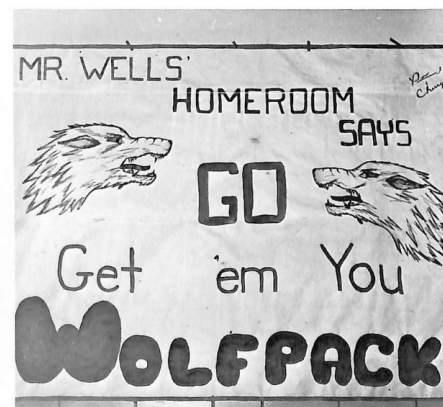 MR. WELLS'
HOMEROOM
SAYS
GO
Get 'em You
WOLFPACK